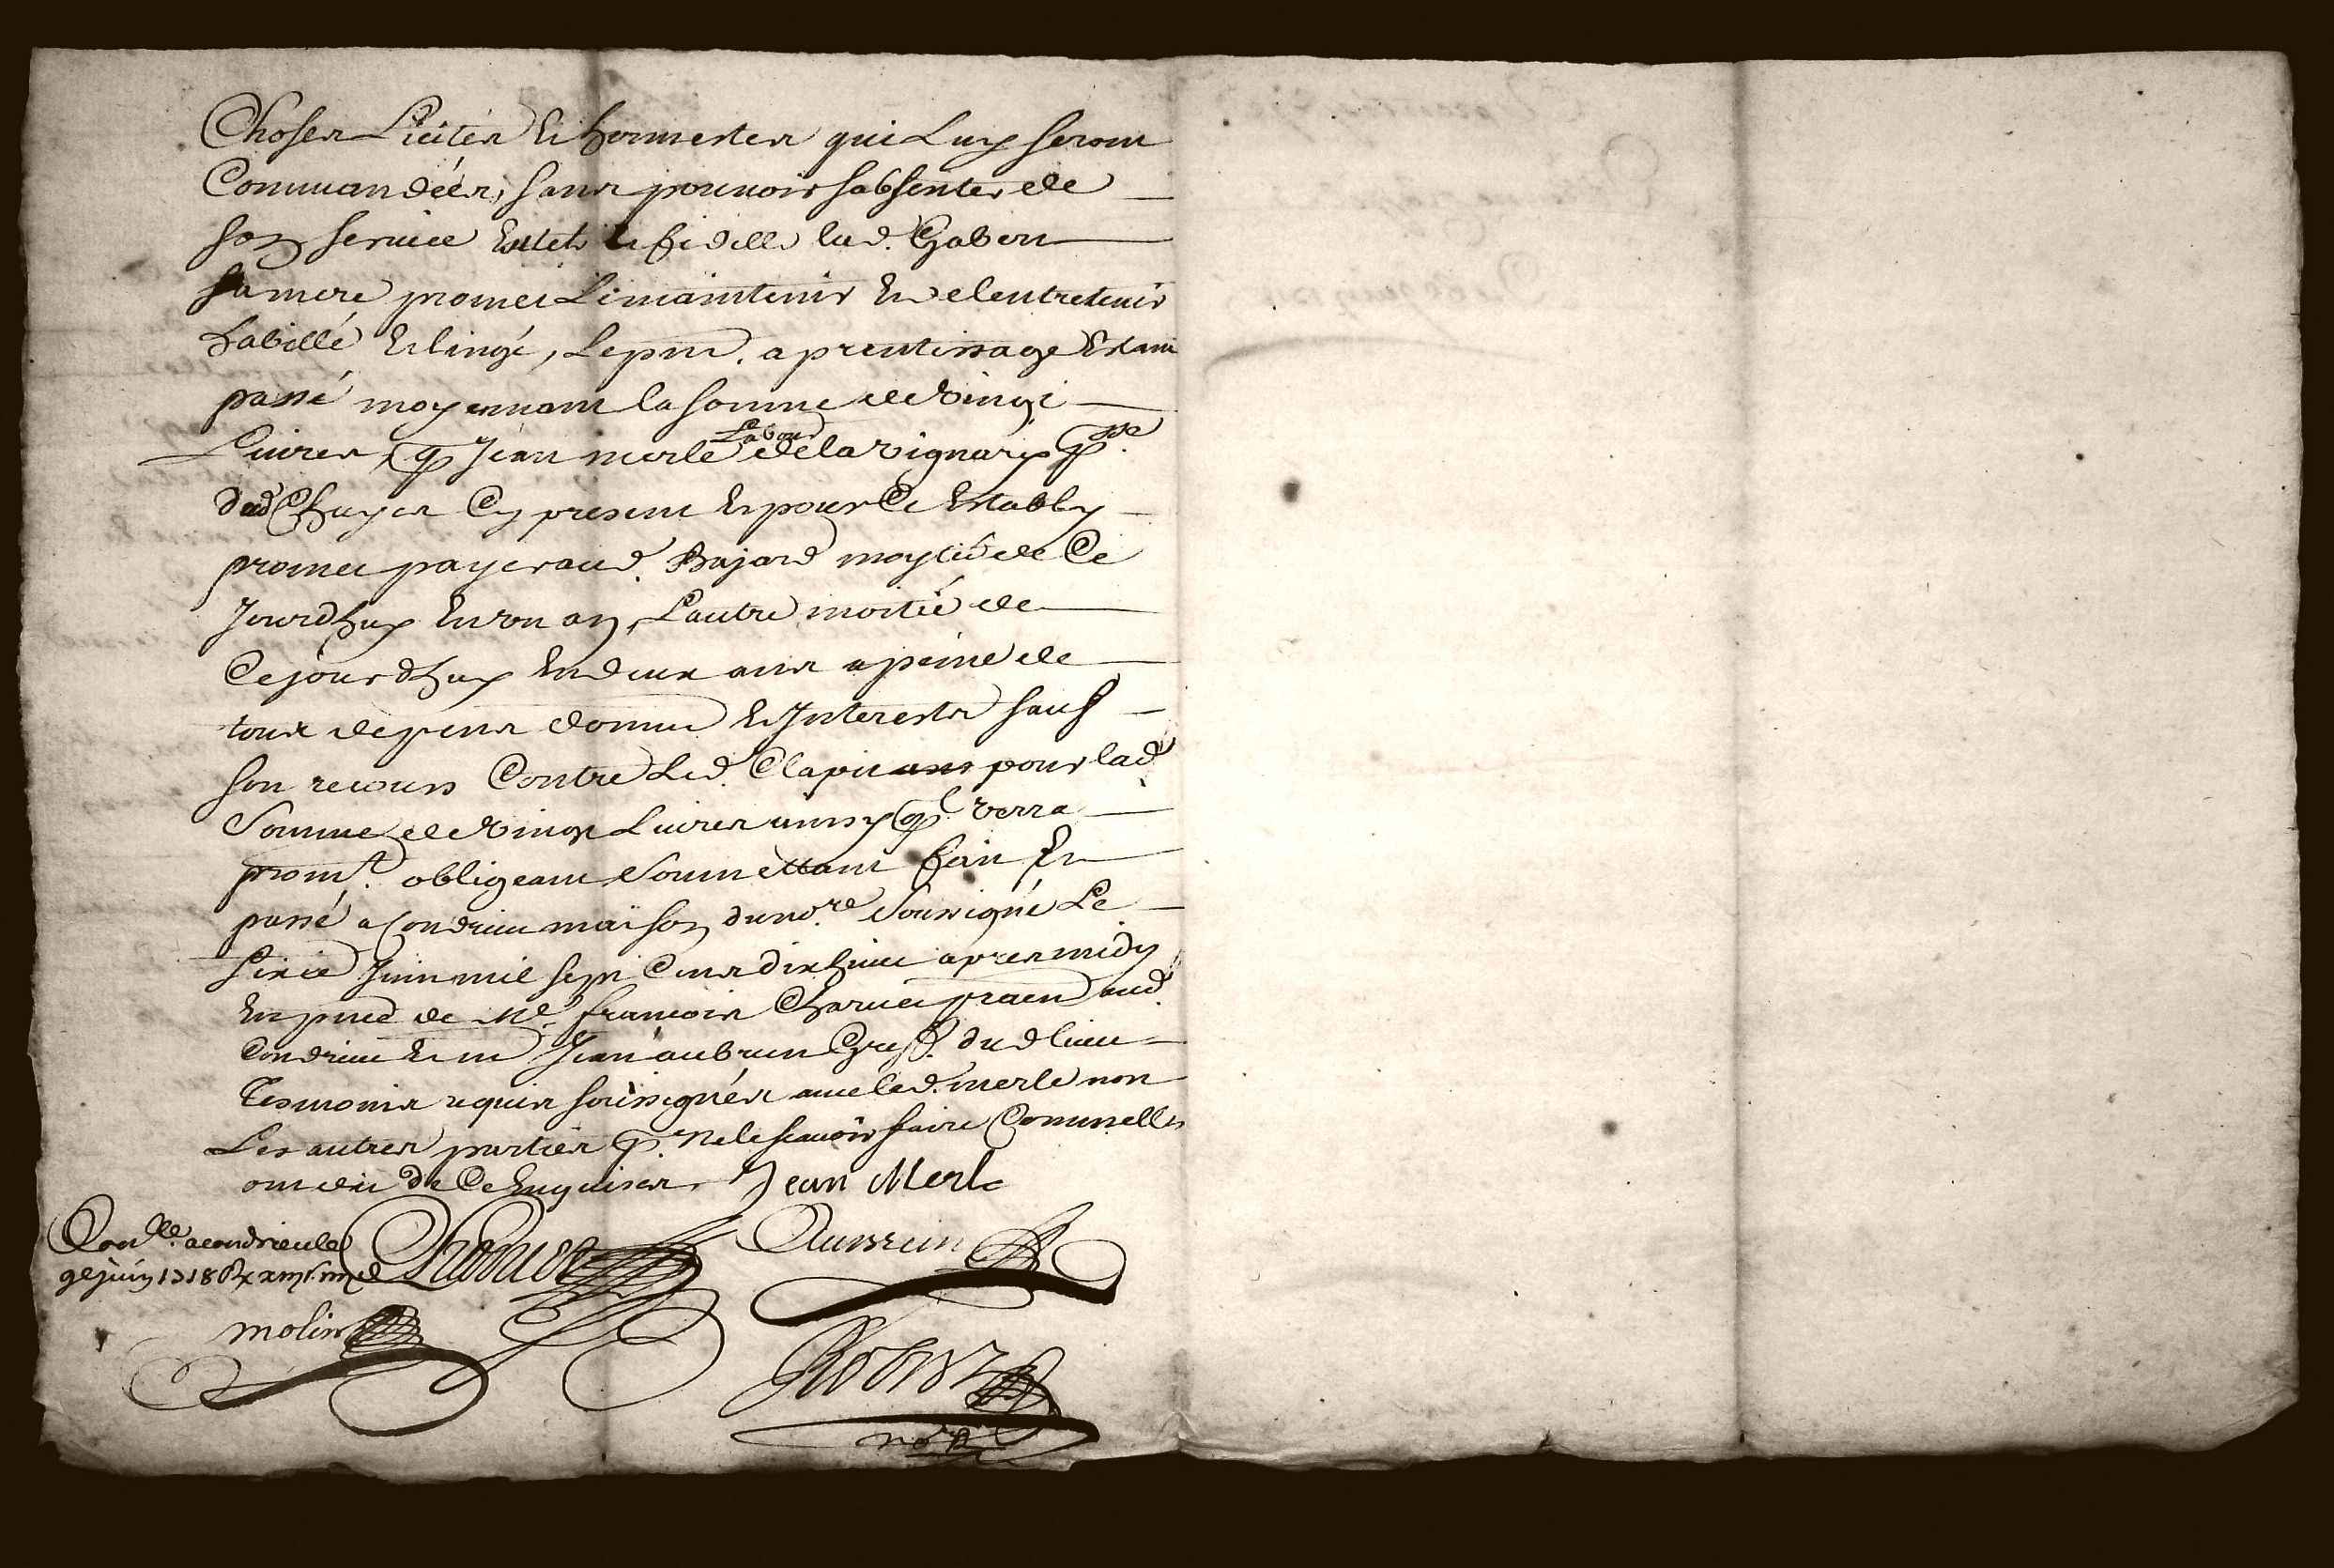 Choses Licites Et honnestes qui Luy seront
Commandées, sans pouvoir sabsenter de
son service Et fidelle lad. Gabert
sa mere promet Le maintenir Et lentretenir
habillé Et lingé, Le pnt. aprentissage Estant
passé moyennant la somme de vingt
Livres, q Jean merle Labour de la vignary psse.
dud Chuyes Cy present Et pour Ce Estably
promet payer aud. Bajard moytié de Ce
Jourdhuy En un an, Lautre moitié de
Cejourdhuy En deux ans a peine de
tous depens domm Et Interests sauf
son recours Contre Led. pour lad
Somme de vingt Livres ainsy ql. verra
promt. obligeant Soumettant fait Et
passé a Condrieu maison du nore. Soussigné Le
sixie Juin mil sept Cens dix huit apres midy
En pnce de Me. francois Charvet praen aud.
Condrieu Et me Jean aubrun Greff. dud lieu
Tesmoins requis soussignés avec led. merle non
Les autres parties p. ne le scavoir faire Comme elles
ont dit de Ce Enquises. Jean Merle
Conlle. a condrieu le Charvet Aubrun
9e juin 1718
molin
Robert
nore